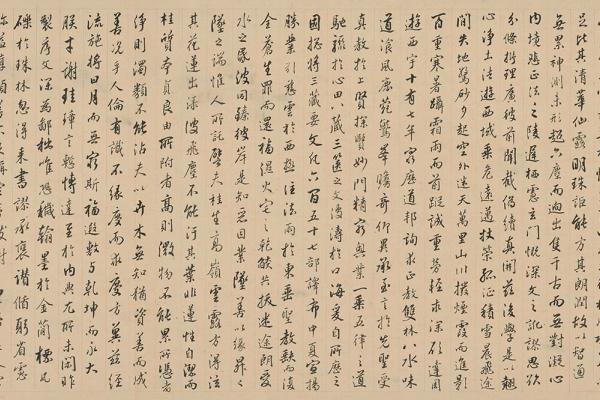 足比其清華仙露明珠詎能方其朗潤故以智通
無累神測未形超六塵而迥出隻千古而無對凝心
內境悲正法之陵遲栖慮玄門慨深文之訛謬思欲
分條析理廣彼前聞截偽續真開茲後學是以翹
心淨土法遊西域乘危遠邁杖策孤征積雪晨飛途
間失地驚砂夕起空外迷天萬里山川撥煙霞而進影
百重寒暑躡霜雨而前蹤誠重勞輕求深願達周
遊西宇十有七年窮歷道邦詢求正教雙林八水味
道飡風鹿菀鷲峯瞻奇仰異承至言於先聖受
真教於上賢探賾妙門精窮奧業一乘五律之道
馳驟於心田八藏三篋之文波濤於口海爰自所歷之
國摠將三藏要文凡六百五十七部譯布中夏宣揚
勝業引慈雲於西極注法雨於東垂聖教缺而復
全蒼生罪而還福濕火宅之乾燄共拔迷途朗愛
水之昏波同臻彼岸是知惡因業墜善以緣昇昇
墜之端惟人所託譬夫桂生高嶺雲露方得泫
其花蓮出淥波飛塵不能污其葉非蓮性自潔而
桂質本貞良由所附者高則微物不能累所憑者
淨則濁類不能沾夫以卉木無知猶資善而成
善況乎人倫有識不緣慶而求慶方冀茲經
流施將日月而無窮斯福遐敷與乾坤而永大
朕才謝珪璋言慙博達至於內典尤所未閑昨
製序文深為鄙拙唯恐穢翰墨於金簡標瓦
礫於珠林忽得來書謬承褒讚循躬省慮